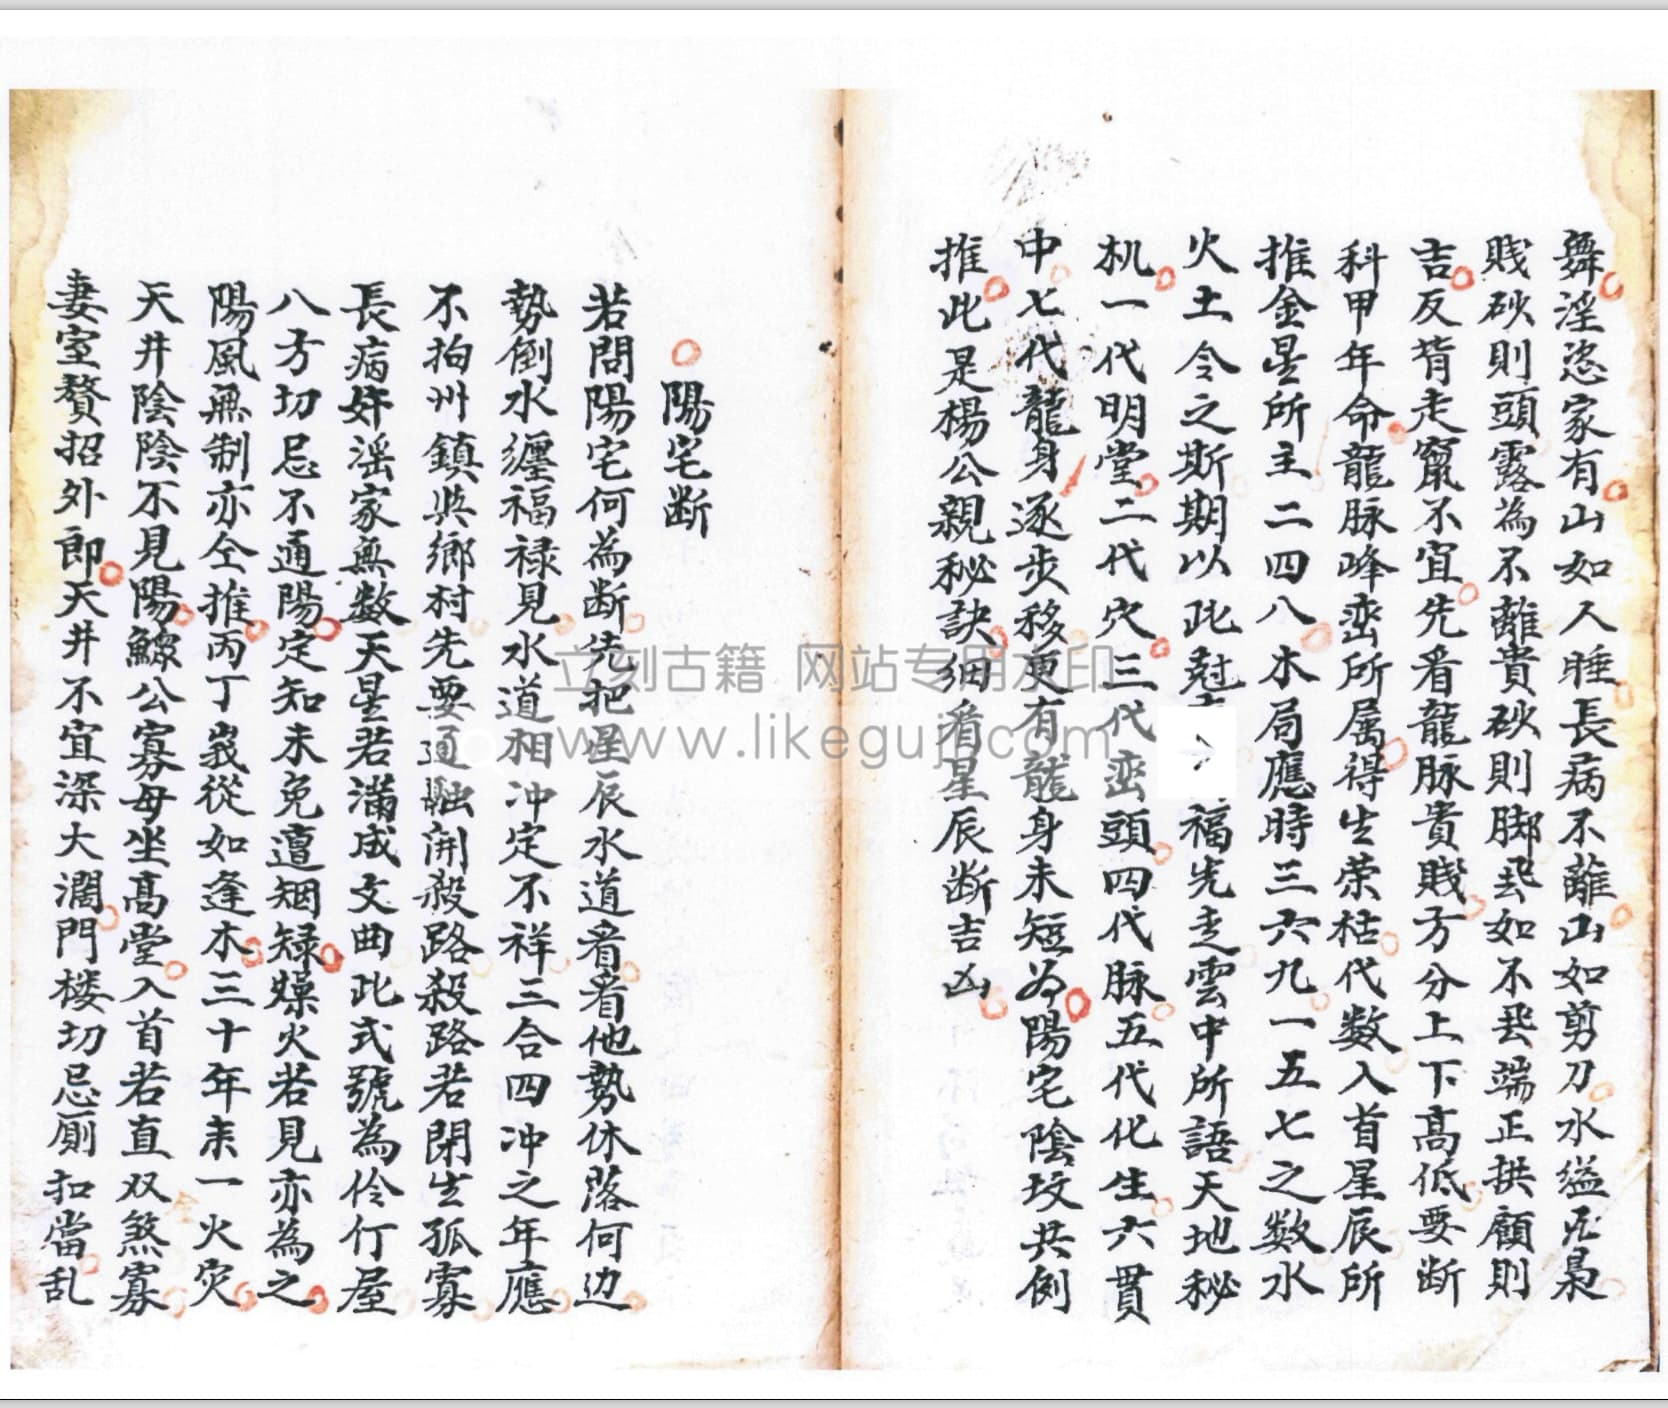 舞淫恣家有山如人睡長病不離山如剪刀水缢反梟
賤砂則頭露為不離貴砂則脚飛如不飛端正拱顧則
吉反背走竄不宜先看龍脉貴賤方分上下高低要断
科甲年命龍脉峰峦所属得生荣枯代数入首星辰所
推金星所主二四八木局應時三六九一五七之数水
火土令之斯期以此尅福先走雲中所語天地秘
机一代明堂二代穴三代峦頭四代脉五代化生六貫
中七代龍身逐步移更有龍身未短為陽宅陰坟共倒
推此是楊公親秘訣細看星辰断吉凶
陽宅断
若問陽宅何為断先把星辰水道看看他勢休落何边
勢倒水纒福禄見水道相冲定不祥三合四冲之年應
不拘州鎮與鄉村先要通融開殺路殺路若閉生孤寡
長病奸淫家無数天星若滿成文曲此式號為伶仃屋
八方切忌不通陽定知未免遭烟燥火若見亦為之
陽風無制亦仝推丙丁嵗從如逢木三十年来一火灾
天井陰陰不見陽鰥公寡母坐髙堂入首若直双煞寡
妻室贅招外郎天井不宜深大濶門楼切忌厠扣當乱
立刻古籍 网站专用水印
www.likeguji.com